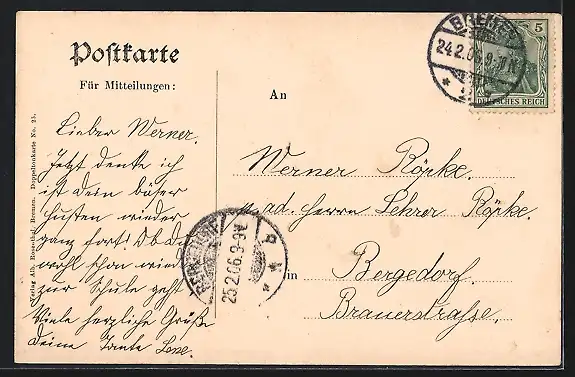 Postkarte
Für Mitteilungen:
An
in
Lieber Werner.
Jetzt denke ich
ist dein böser
Husten wieder
ganz fort! Ob du
wohl schon wied
zur Schule gehst
Viele herzliche Grüße
deine Tante Lene.
Werner Röpke.
ad. Herrn Lehrer Röpke.
Bergedorf.
Brauerstrasse.
BREMEN
24.2.06.
BERGEDORF
25.2.06.
5
DEUTSCHES REICH
Verlag Alb. Rosenthal, Bremen. Doppeltonkarte No. 25.